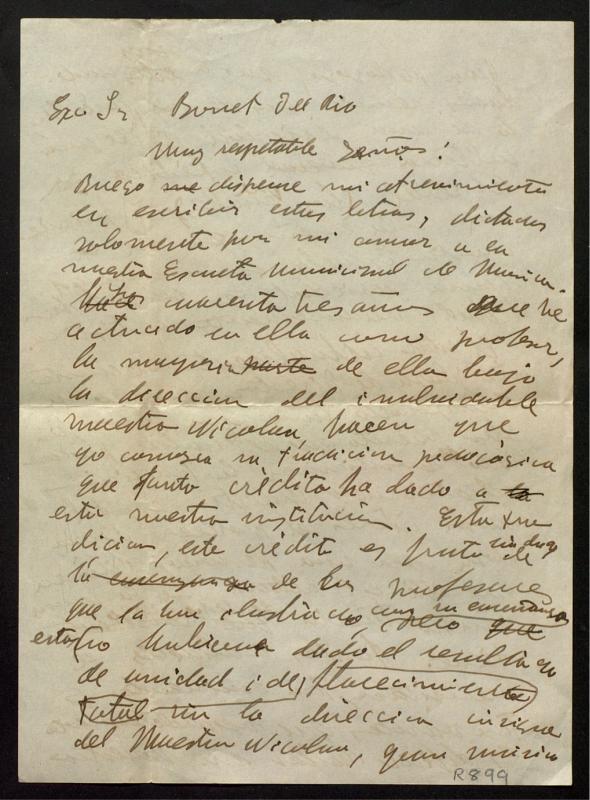 Exo Sr Bonet Del Rio
Muy respetable Señor!
Ruego me dispense mi atrevimiento
en escribir estas letras, dictadas
solamente por mi amor a la
nuestra Escuela Municipal de Musica.
cuarenta tres años que he
actuado en ella como profesor,
la mayoria parte de ella bajo
la direccion del inolvidable
maestro Nicolau, hacen que
yo conozca su tradicion pedagógica
que tanto crédito ha dado a la
esta nuestra institución. Esta tra
dicion, este crédito es fruto sin duda de
la enseñanza de los profesores
que la han ilustrado, con su enseñanza, pero que
esta no hubiera dado el resultado
de unidad i de florecimiento
total sin la direccion insigne
del Maestro Nicolau, gran músico
R899